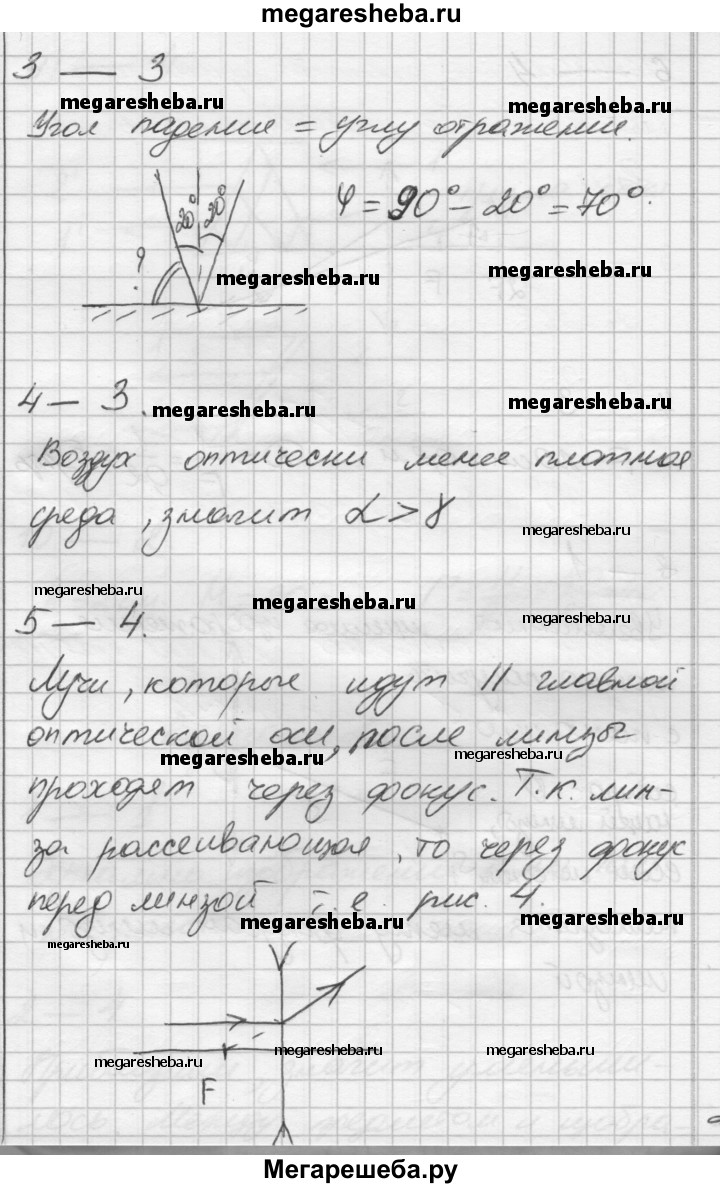 megaresheba.ru
3 — 3
megaresheba.ru
megaresheba.ru
Угол падения = углу отражения.
20° 20°
φ = 90° - 20° = 70°.
?
megaresheba.ru
megaresheba.ru
4 — 3.
megaresheba.ru
megaresheba.ru
Воздух оптически менее плотная
среда, значит α > γ
megaresheba.ru
megaresheba.ru
megaresheba.ru
megaresheba.ru
5 — 4.
Лучи, которые идут || главной
оптической оси, после линзы
megaresheba.ru
megaresheba.ru
проходят через фокус. Т.к. лин-
за рассеивающая, то через фокус
перед линзой т.е. рис. 4.
megaresheba.ru
megaresheba.ru
megaresheba.ru
megaresheba.ru
megaresheba.ru
F
Мегарешеба.ру